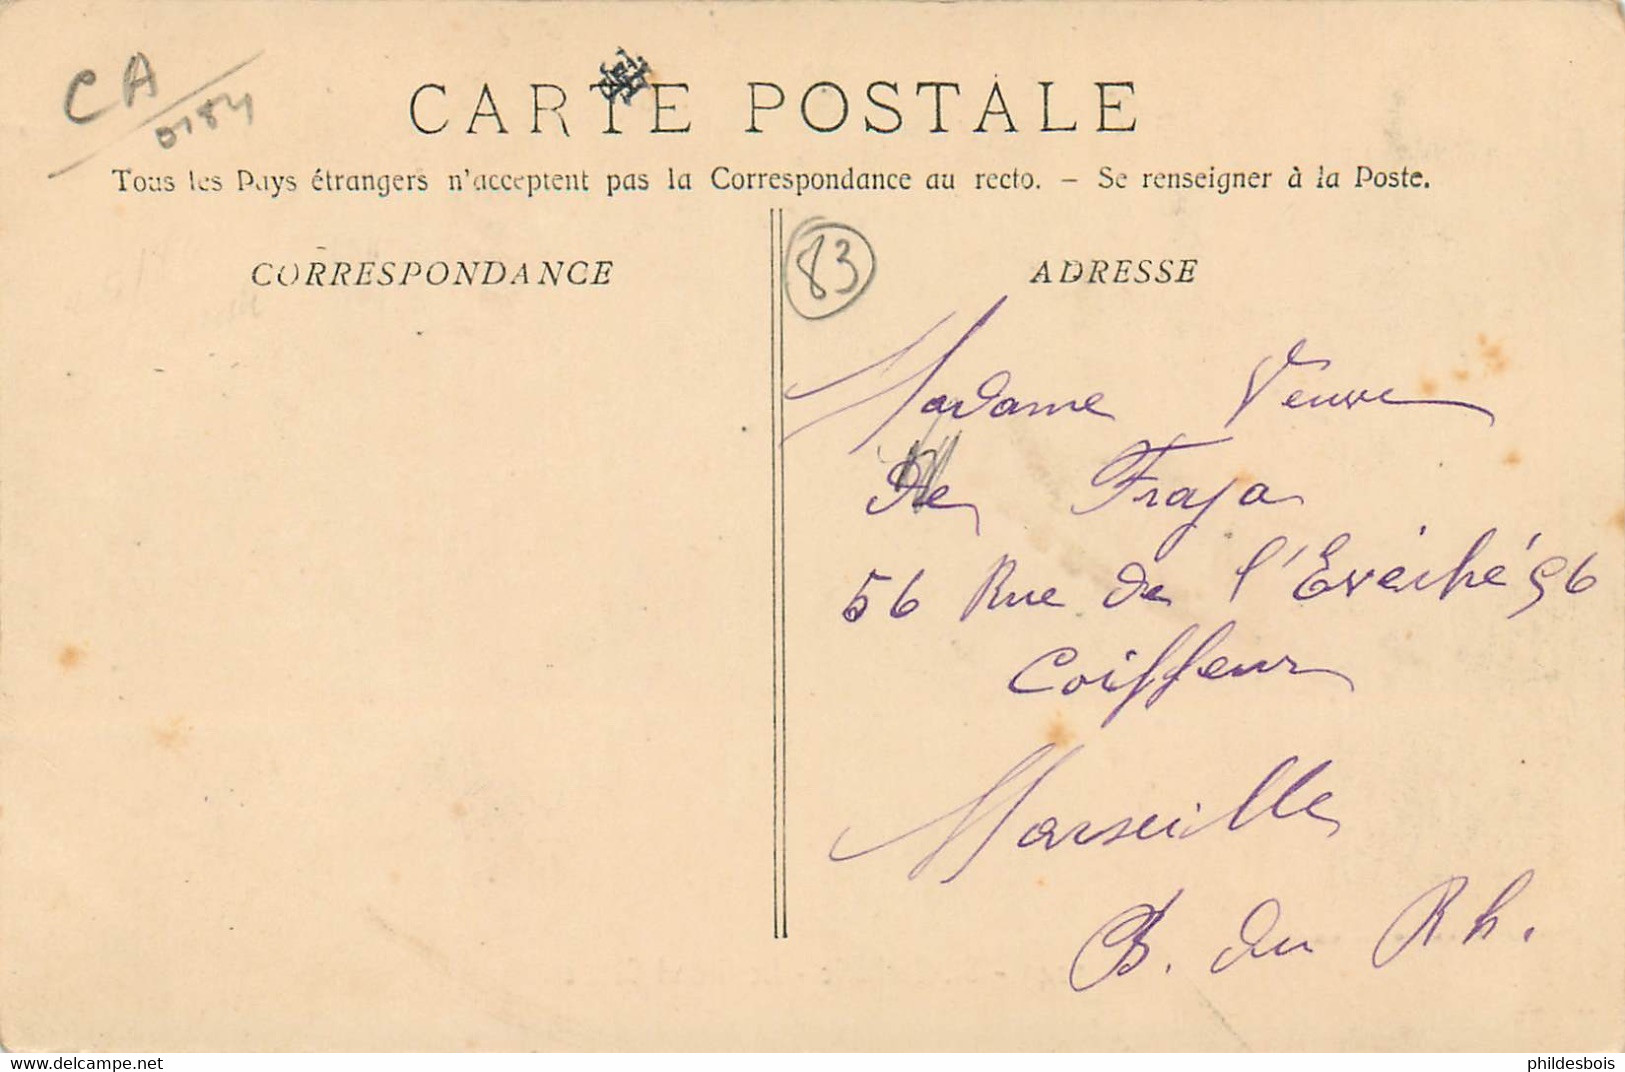 CA
0184
CARTE POSTALE
Tous les Pays étrangers n'acceptent pas la Correspondance au recto. – Se renseigner à la Poste.
CORRESPONDANCE
83
ADRESSE
Madame Veuve
De Fraja
56 Rue de l'Evéché 56
Coiffeur
Marseille
B. du Rh.
https://www.delcampe.net
phildesbois